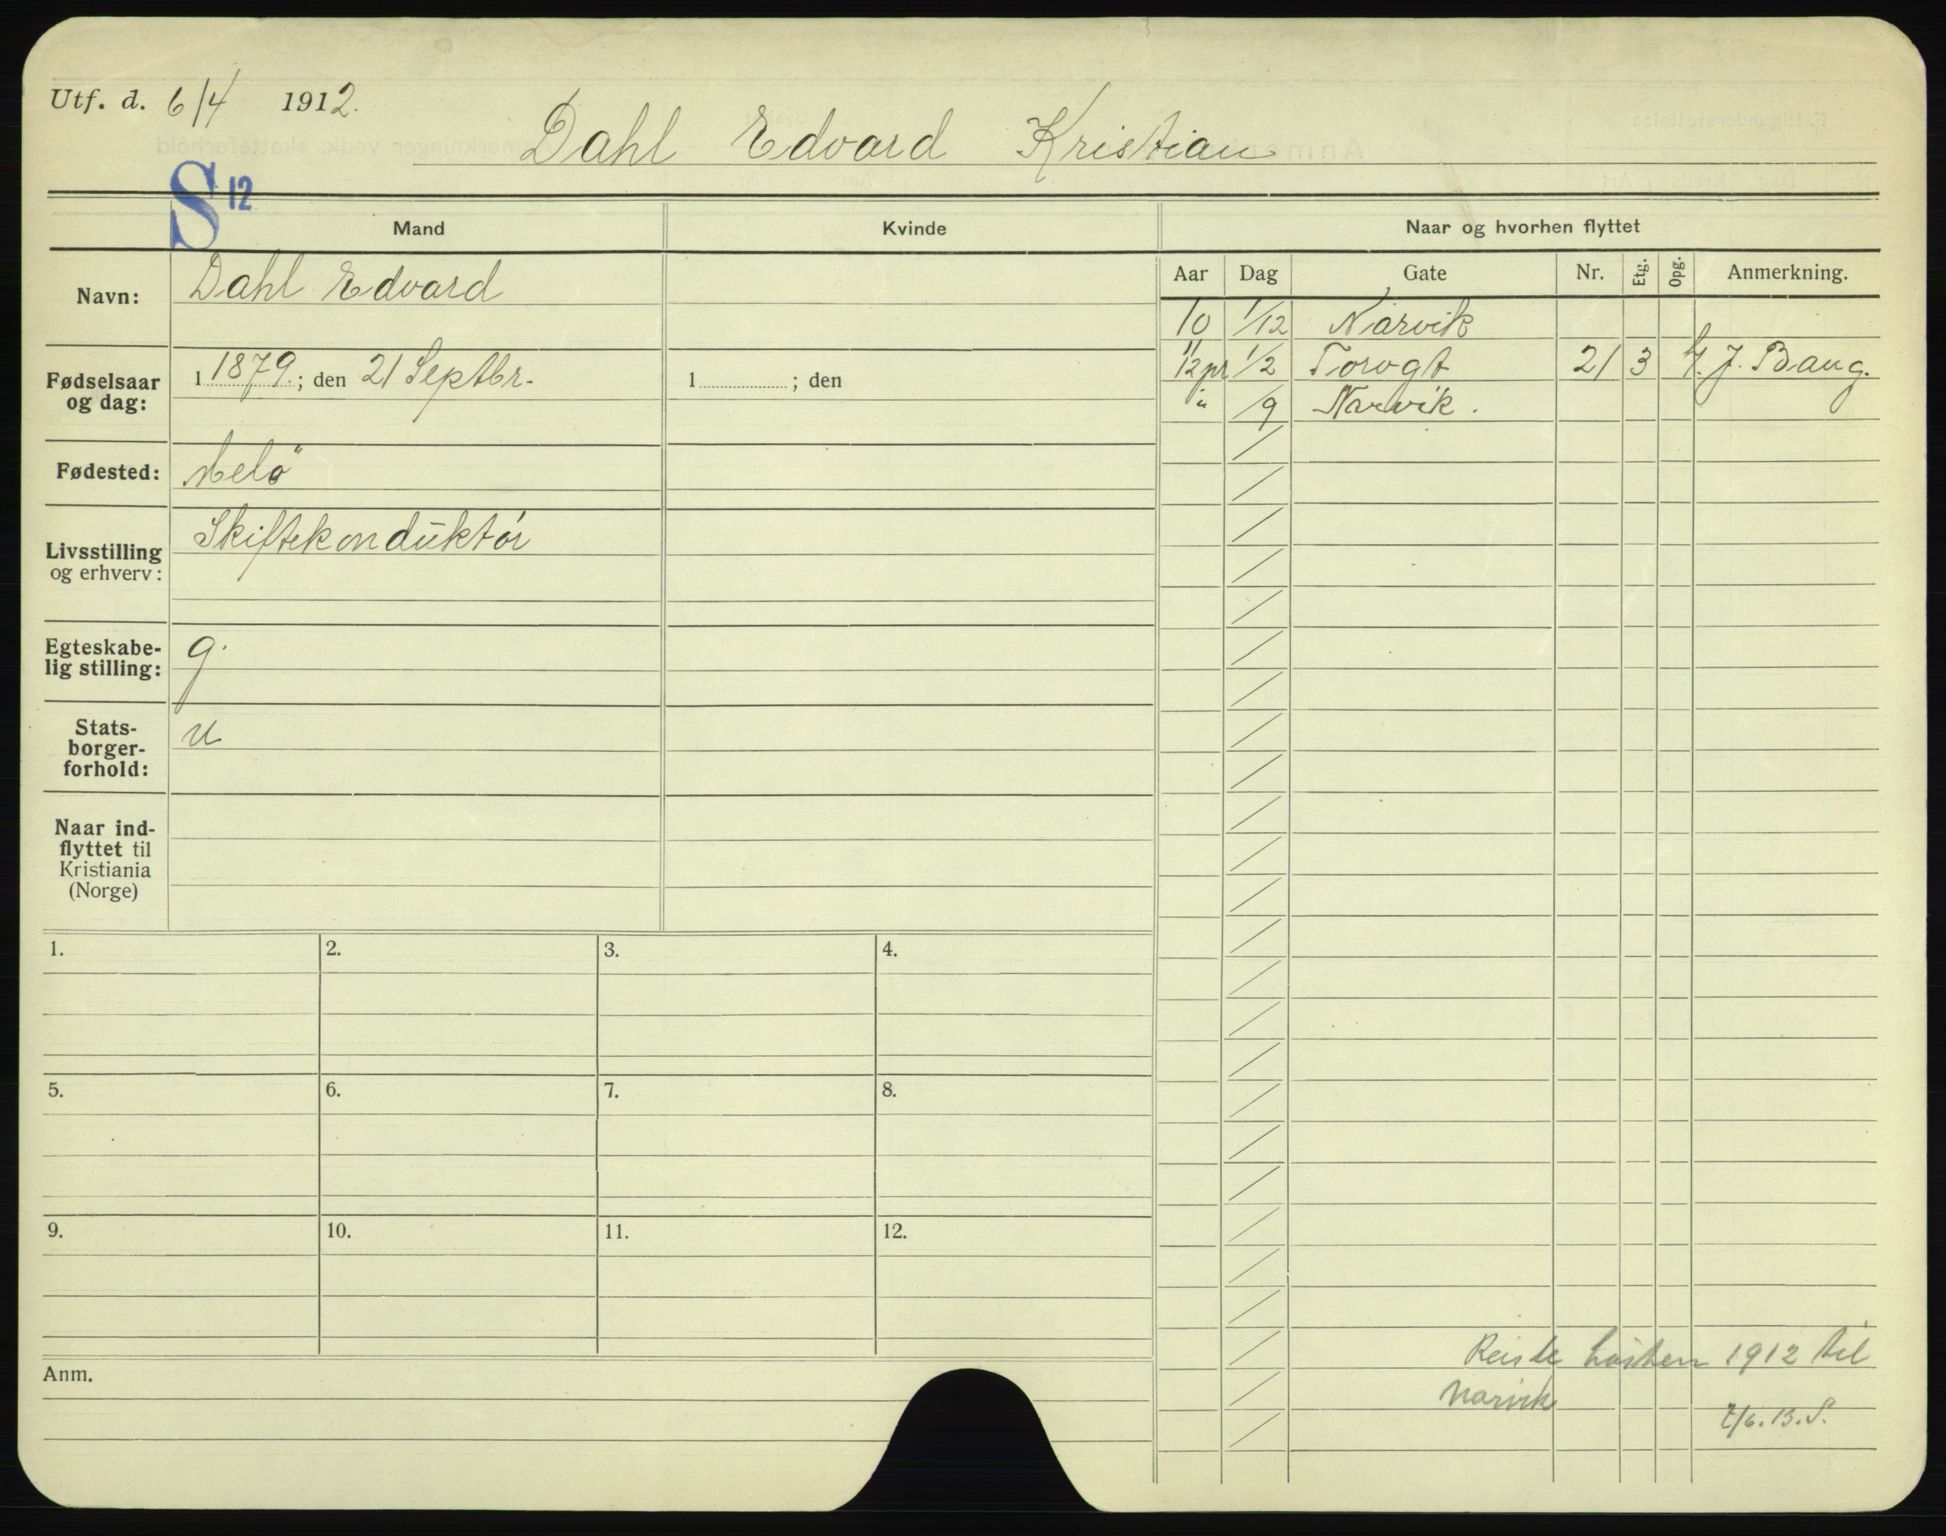 Utf. d. 6/4 1912.
Dahl Edvard Kristian
S 12
Mand Kvinde Naar og hvorhen flyttet
Navn: Dahl Edvard
Aar Dag Gate Nr. Etg. Opg. Anmerkning.
10 1/12 Narvik
Fødselsaar og dag: 1 1879.; den 21 Septbr. 1 ; den
12 pr 1/2 Torvgt 21 3 J. Bang.
" /9 Narvik.
Fødested: Melö
Livsstilling og erhverv: Skiftekonduktör
Egteskabe-
lig stilling: g.
Stats-
borger-
forhold: u
Naar ind-
flyttet til
Kristiania
(Norge)
1. 2. 3. 4.
5. 6. 7. 8.
9. 10. 11. 12.
Anm.
Reiste hösten 1912 til
Narvik
/6.13.S.